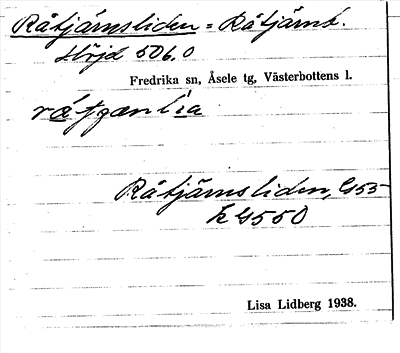 Råtjärnsliden = Råtjärnt.
Höjd 506.0
Fredrika sn, Åsele tg, Västerbottens l.
Råtjärnsliden, Gs55
k Gs550
Lisa Lidberg 1938.